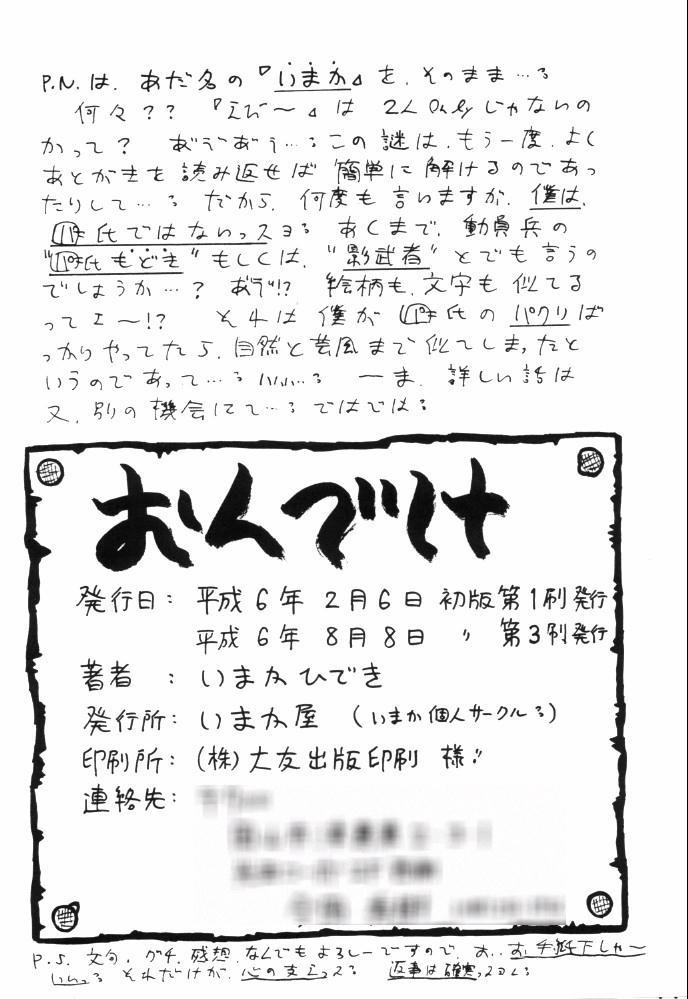 P.N.は、あだ名の『いまか』を、そのまま…。
何々??『えび〜』は2人Onlyじゃないの
かって? おうおう…。この謎は、もう一度、よく
あとがきを読み返せば簡単に解けるのであっ
たりして…。だから、何度も言いますが、僕は、
氏ではないっスョ。あくまで、動員兵の
"氏もどき"もしくは、"影武者"とでも言うの
でしょうか…? !? 絵柄も、文字も似てる
ってェ〜!? それは僕が氏のパクリば
っかりやってたら、自然と芸風まで似てしまったと
いうのであって…。 ーま、詳しい話は
又、別の機会にて…。ではでは。
おんでけ
発行日: 平成6年2月6日 初版第1刷発行
平成6年8月8日 〃 第3刷発行
著者 : いまかひでき
発行所: いまか屋 (いまか個人サークル。)
印刷所: (株)大友出版印刷 様!!
連絡先:
P.S. 文句、グチ、感想、なんでもよろしーですので、お、お手紙下しゃ〜
いっ。それだけが、心の支えっス。 返事は確実っスョ。